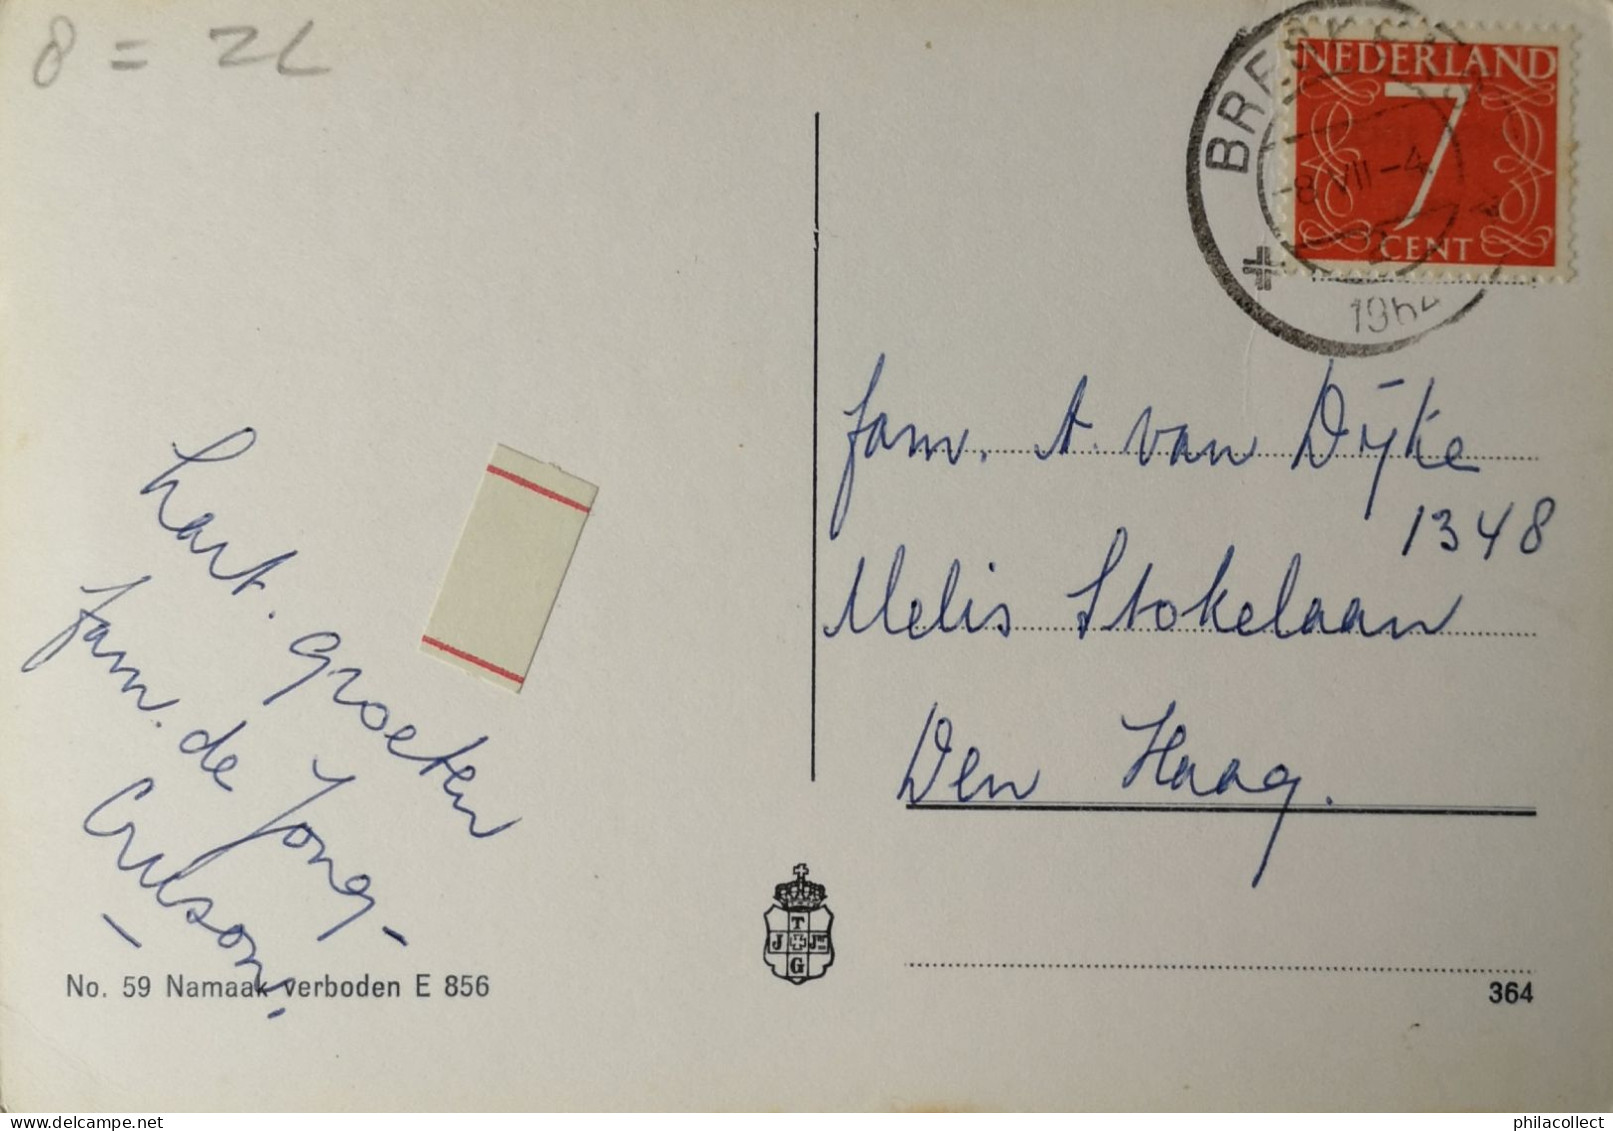 8 = ZL
NEDERLAND
7
CENT
BRESKENS
-8.VII-4
1964
fam. A. van Dijke
1348
Melis Stokelaan
Den Haag.
hart. groeten
fam. de Jong-
T
J J
G
No. 59 Namaak verboden E 856
364
philacollect